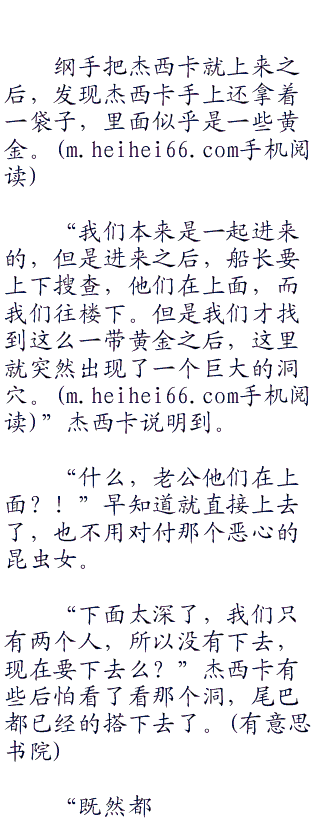 纲手把杰西卡就上来之
后，发现杰西卡手上还拿着
一袋子，里面似乎是一些黄
金。(m.heihei66.com手机阅
读)
“我们本来是一起进来
的，但是进来之后，船长要
上下搜查，他们在上面，而
我们往楼下。但是我们才找
到这么一带黄金之后，这里
就突然出现了一个巨大的洞
穴。(m.heihei66.com手机阅
读)”杰西卡说明到。
“什么，老公他们在上
面？！”早知道就直接上去
了，也不用对付那个恶心的
昆虫女。
“下面太深了，我们只
有两个人，所以没有下去，
现在要下去么？”杰西卡有
些后怕看了看那个洞，尾巴
都已经的搭下去了。(有意思
书院)
“既然都